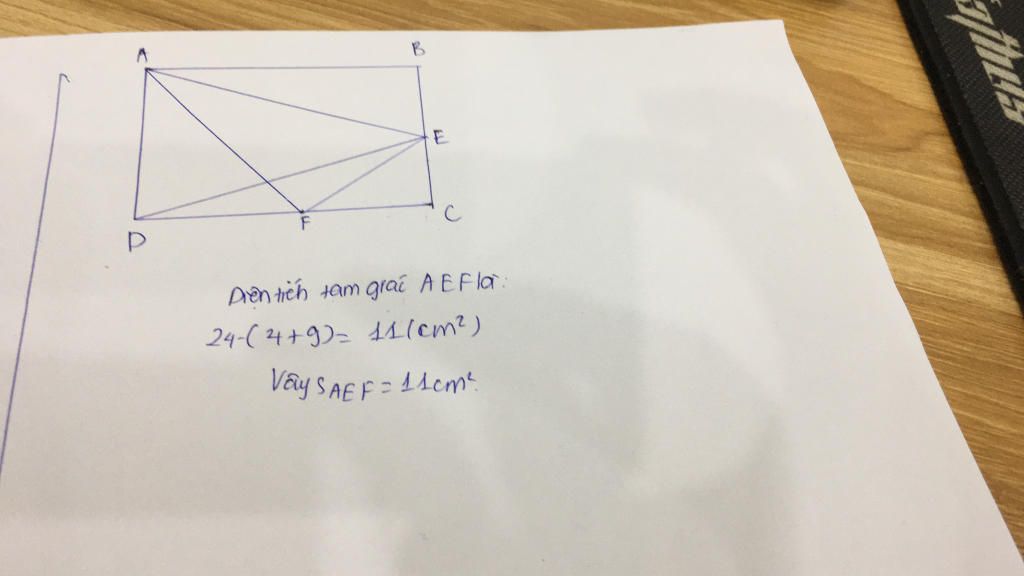 A
B
E
D
F
C
Diện tích tam giác AEF là:
24-(4+9)= 11(cm²)
Vậy S AEF = 11cm².